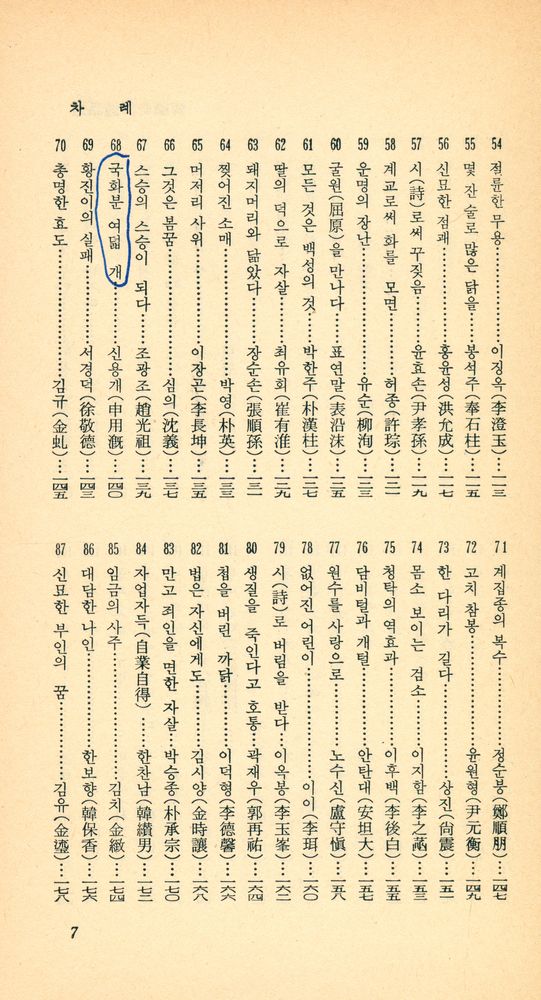 차 례
54 절륜한 무용……이징옥(李澄玉)…一一三
55 몇 잔 술로 많은 닭을……봉석주(奉石柱)…一一五
56 신묘한 점괘……홍윤성(洪允成)…一一七
57 시(詩)로써 꾸짖음……윤효손(尹孝孫)…一一九
58 계교로써 화를 모면……허종(許琮)…一二一
59 운명의 장난……유순(柳洵)…一二三
60 굴원(屈原)을 만나다……표연말(表沿沫)…一二五
61 모든 것은 백성의 것……박한주(朴漢柱)…一二七
62 딸의 덕으로 자살……최유회(崔有淮)…一二九
63 돼지머리와 닮았다……장순손(張順孫)…一三一
64 찢어진 소매……박영(朴英)…一三三
65 머저리 사위……이장곤(李長坤)…一三五
66 그것은 봄꿈……심의(沈義)…一三七
67 스승의 스승이 되다……조광조(趙光祖)…一三九
68 국화분 여덟 개……신용개(申用漑)…一四〇
69 황진이의 실패……서경덕(徐敬德)…一四三
70 총명한 효도……김규(金虬)…一四五
71 계집종의 복수……정순붕(鄭順朋)…一四七
72 고치 참봉……윤원형(尹元衡)…一四九
73 한 다리가 길다……상진(尙震)…一五一
74 몸소 보이는 검소……이지함(李之菡)…一五三
75 청탁의 역효과……이후백(李後白)…一五五
76 담비털과 개털……안탄대(安坦大)…一五七
77 원수를 사랑으로……노수신(盧守愼)…一五八
78 없어진 어린이……이이(李珥)…一六〇
79 시(詩)로 버림을 받다…이옥봉(李玉峯)…一六二
80 생질을 죽인다고 호통…곽재우(郭再祐)…一六四
81 첩을 버린 까닭……이덕형(李德馨)…一六六
82 법은 자신에게도……김시양(金時讓)…一六八
83 만고 죄인을 면한 자살…박승종(朴承宗)…一七〇
84 자업자득(自業自得)……한찬남(韓纘男)…一七三
85 임금의 사주……김치(金緻)…一七四
86 대담한 나인……한보향(韓保香)…一七六
87 신묘한 부인의 꿈……김유(金瑬)…一七八
7